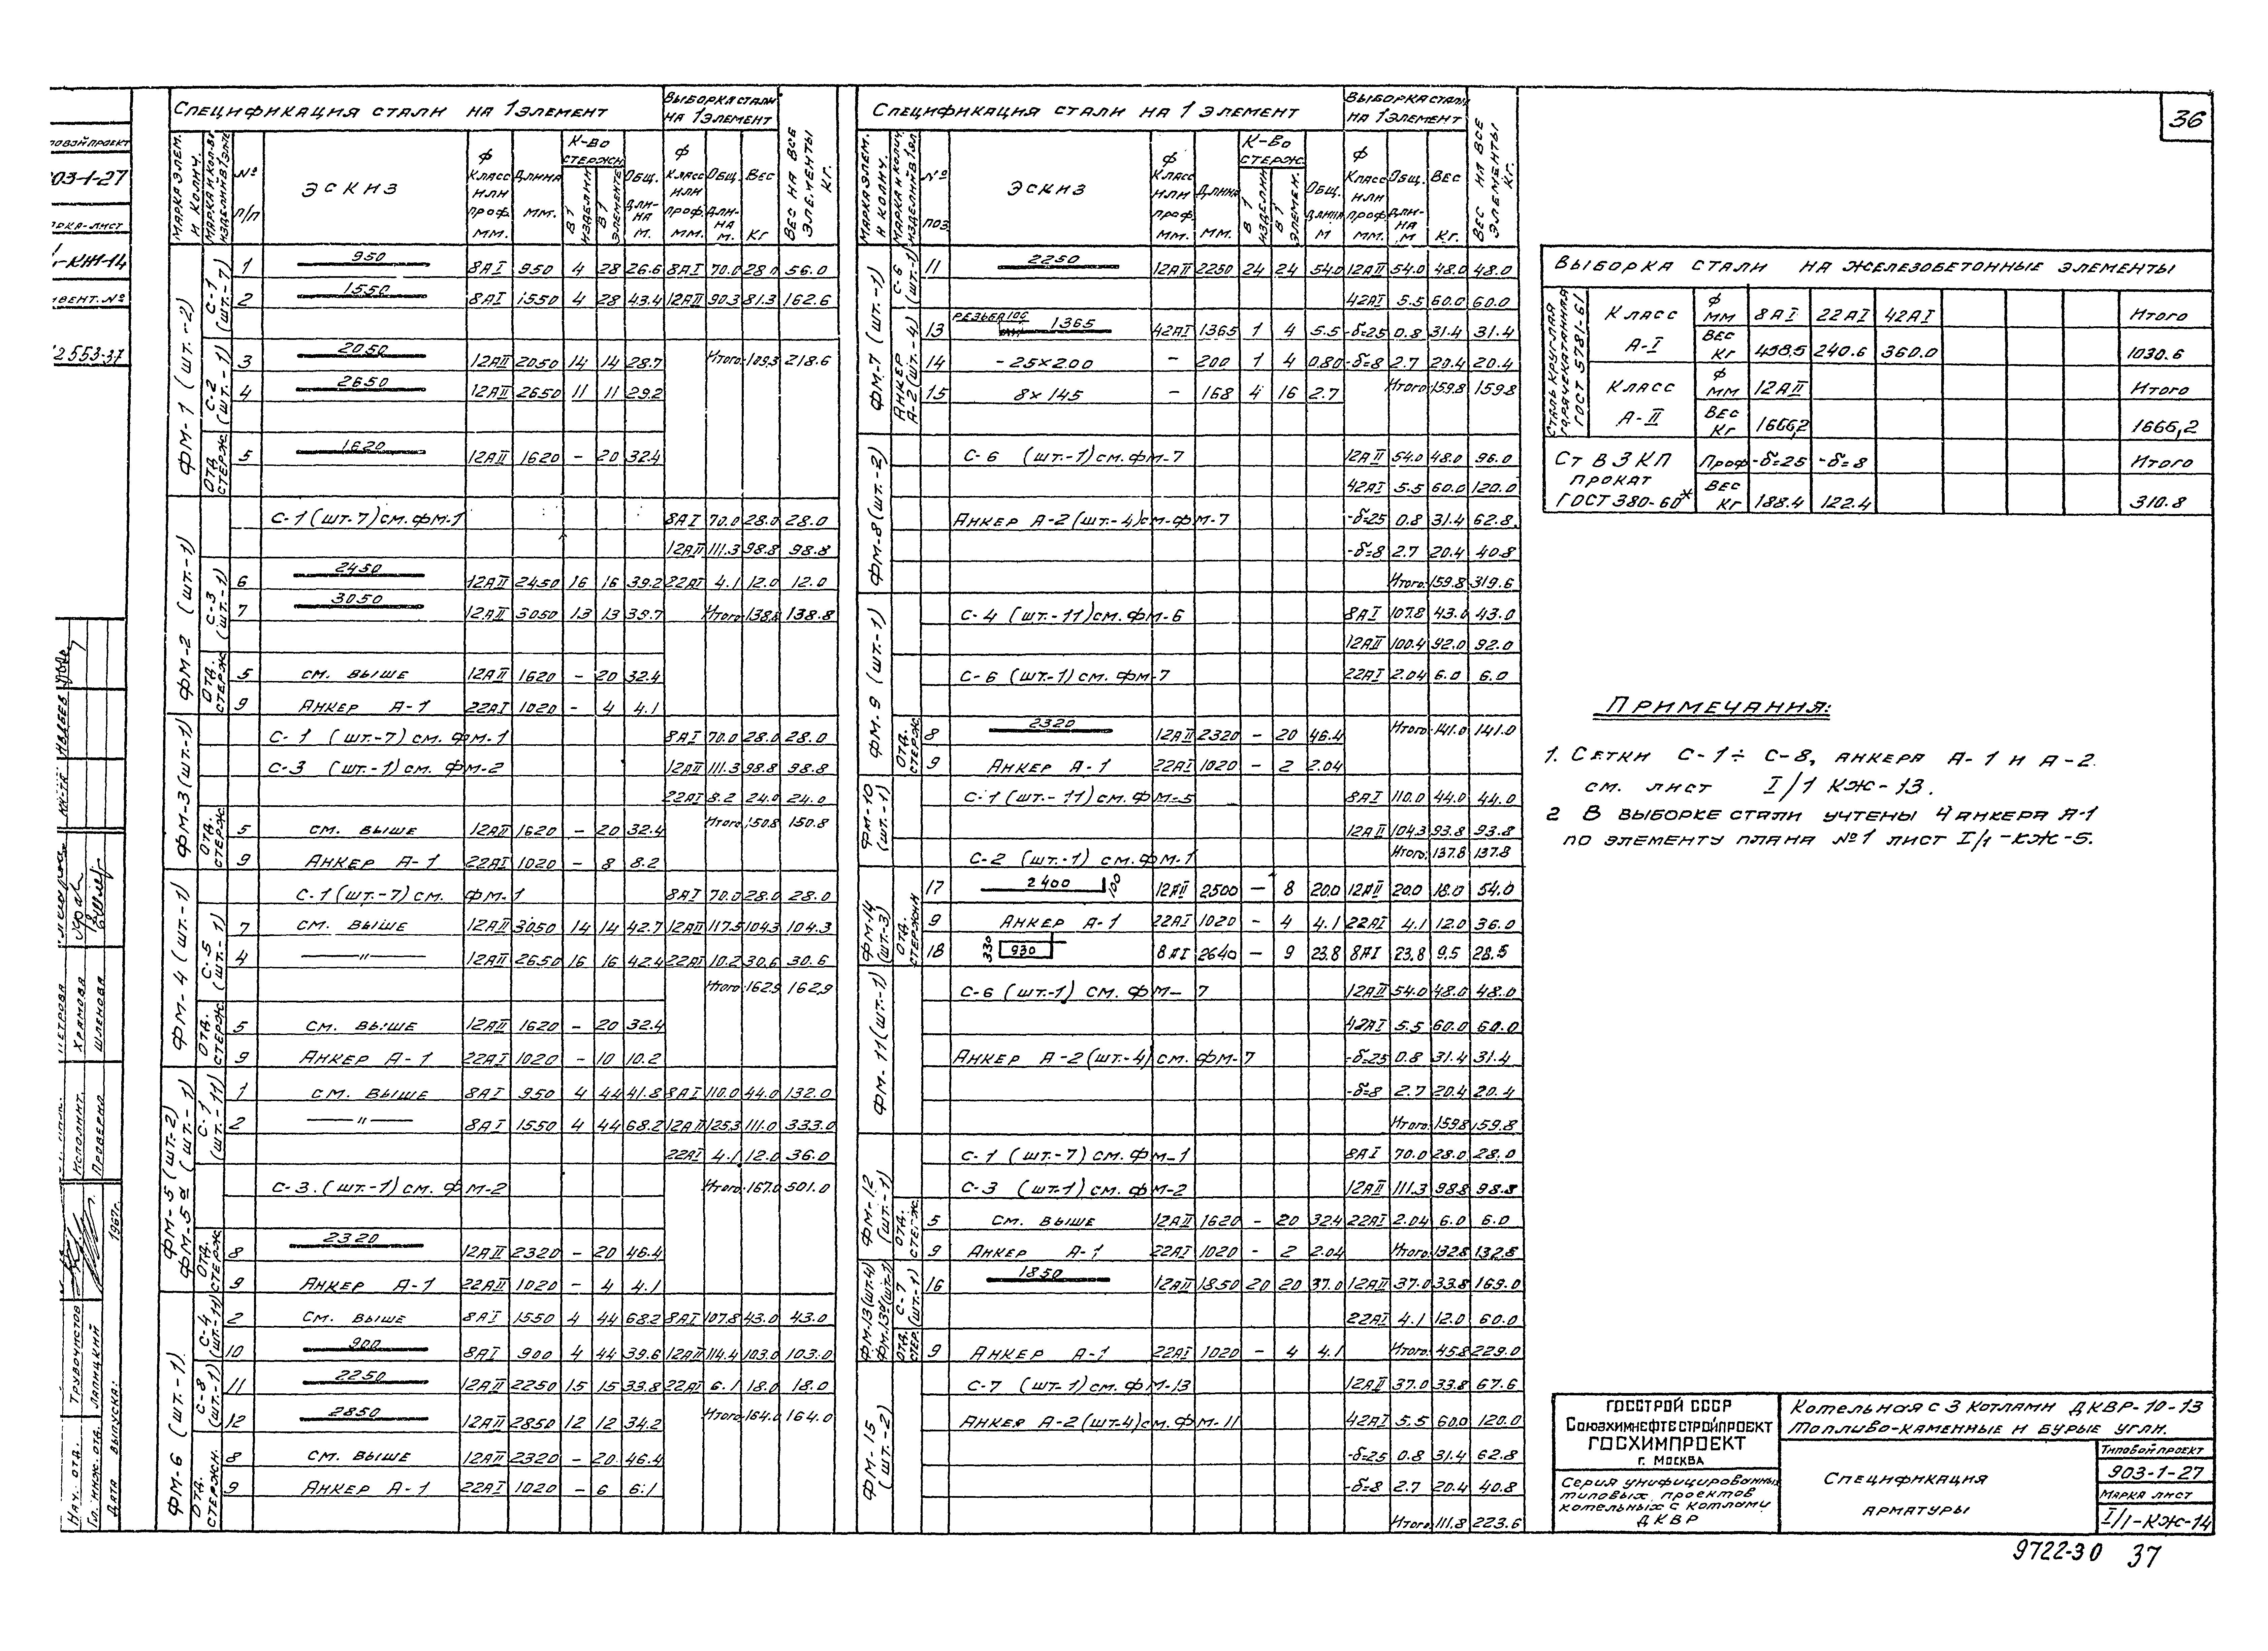 36
Спецификация стали на 1 элемент
Выборка стали на 1 элемент
Вес на все элементы кг.
Марка элем. и колич.
Марка и кол-во изделий в 1 элем.
№ п/п
Эскиз
ф класс или проф. мм.
Длина мм.
К-во стержн.
в 1 изделии
в 1 элементе
Общ. длина м.
ф класс или проф. мм.
Общ. длина м.
Вес кг
ФМ-1 (шт.-2)
С-1 (шт.-7)
1 950 8АI 950 4 28 26.6 8АI 70.0 28.0 56.0
2 1550 8АI 1550 4 28 43.4 12АII 90.3 81.3 162.6
С-2 (шт.-1)
3 2050 12АII 2050 14 14 28.7 Итого: 109.3 218.6
4 2650 12АII 2650 11 11 29.2
Отд. стерж.
5 1620 12АII 1620 - 20 32.4
ФМ-2 (шт.-1)
С-1 (шт.-7) см. ФМ-1 8АI 70.0 28.0 28.0
12АII 111.3 98.8 98.8
С-3 (шт.-1)
6 2450 12АII 2450 16 16 39.2 22АI 4.1 12.0 12.0
7 3050 12АII 3050 13 13 39.7 Итого: 138.8 138.8
Отд. стерж.
5 см. выше 12АII 1620 - 20 32.4
9 Анкер А-1 22АI 1020 - 4 4.1
ФМ-3 (шт.-1)
С-1 (шт.-7) см. ФМ-1 8АI 70.0 28.0 28.0
С-3 (шт.-1) см. ФМ-2 12АII 111.3 98.8 98.8
22АI 8.2 24.0 24.0
Отд. стерж.
5 см. выше 12АII 1620 - 20 32.4 Итого: 150.8 150.8
9 Анкер А-1 22АI 1020 - 8 8.2
ФМ-4 (шт.-1)
С-1 (шт.-7) см. ФМ-1 8АI 70.0 28.0 28.0
С-5 (шт.-1)
7 см. выше 12АII 3050 14 14 42.7 12АII 117.5 104.3 104.3
4 —"— 12АII 2650 16 16 42.4 22АI 10.2 30.6 30.6
Итого: 162.9 162.9
Отд. стерж.
5 см. выше 12АII 1620 - 20 32.4
9 Анкер А-1 22АI 1020 - 10 10.2
ФМ-5 (шт.-2)
ФМ-5а (шт.-1)
С-1 (шт.-11)
1 см. выше 8АI 950 4 44 41.8 8АI 110.0 44.0 132.0
2 —"— 8АI 1550 4 44 68.2 12АII 125.3 111.0 333.0
22АI 4.1 12.0 36.0
С-3. (шт.-1) см. ФМ-2 Итого: 167.0 501.0
Отд. стерж.
8 2320 12АII 2320 - 20 46.4
9 Анкер А-1 22АII 1020 - 4 4.1
ФМ-6 (шт.-1)
С-4 (шт.-11)
2 см. выше 8АI 1550 4 44 68.2 8АI 107.8 43.0 43.0
10 900 8АI 900 4 44 39.6 12АII 114.4 103.0 103.0
С-8 (шт.-1)
11 2250 12АII 2250 15 15 33.8 22АI 6.1 18.0 18.0
12 2850 12АII 2850 12 12 34.2 Итого: 164.0 164.0
Отд. стержн.
8 см. выше 12АII 2320 - 20 46.4
9 Анкер А-1 22АI 1020 - 6 6.1
Спецификация стали на 1 элемент
Выборка стали на 1 элемент
Вес на все элементы кг.
Марка элем. и колич.
Марка и колич. изделий в 1 эл.
№ поз.
Эскиз
ф класс или проф. мм.
Длина мм.
К-во стерж.
в 1 изделии
в 1 элемен.
Общ. длина м
ф класс или проф. мм.
Общ. длина м
Вес кг.
ФМ-7 (шт.-1)
С-6 (шт.-1)
11 2250 12АII 2250 24 24 54.0 12АII 54.0 48.0 48.0
42АI 5.5 60.0 60.0
Анкер А-2 (шт.-4)
13 резьба 100 1365 42АI 1365 1 4 5.5 -δ=25 0.8 31.4 31.4
14 -25×200 - 200 1 4 0.80 -δ=8 2.7 20.4 20.4
15 8×145 - 168 4 16 2.7 Итого: 159.8 159.8
ФМ-8 (шт.-2)
С-6 (шт.-1) см. ФМ-7 12АII 54.0 48.0 96.0
42АI 5.5 60.0 120.0
Анкер А-2 (шт.-4) см. ФМ-7 -δ=25 0.8 31.4 62.8
-δ=8 2.7 20.4 40.8
Итого: 159.8 319.6
ФМ-9 (шт.-1)
С-4 (шт.-11) см. ФМ-6 8АI 107.8 43.0 43.0
12АII 100.4 92.0 92.0
С-6 (шт.-1) см. ФМ-7 22АI 2.04 6.0 6.0
Отд. стерж.
8 2320 12АII 2320 - 20 46.4 Итого: 141.0 141.0
9 Анкер А-1 22АI 1020 - 2 2.04
ФМ-10 (шт.-1)
С-1 (шт.-11) см. ФМ-5 8АI 110.0 44.0 44.0
12АII 104.3 93.8 93.8
С-2 (шт.-1) см. ФМ-1 Итого: 137.8 137.8
ФМ-14 (шт.-3)
Отд. стержни
17 2400 100 12АII 2500 - 8 20.0 12АII 20.0 18.0 54.0
9 Анкер А-1 22АI 1020 - 4 4.1 22АI 4.1 12.0 36.0
18 330 930 8АI 2640 - 9 23.8 8АI 23.8 9.5 28.5
ФМ-11 (шт.-1)
С-6 (шт.-1) см. ФМ-7 12АII 54.0 48.0 48.0
42АI 5.5 60.0 60.0
Анкер А-2 (шт.-4) см. ФМ-7 -δ=25 0.8 31.4 31.4
-δ=8 2.7 20.4 20.4
Итого: 159.8 159.8
ФМ-12 (шт.-1)
С-1 (шт.-7) см. ФМ-1 8АI 70.0 28.0 28.0
С-3 (шт-1) см. ФМ-2 12АII 111.3 98.8 98.8
Отд. стерж.
5 см. выше 12АII 1620 - 20 32.4 22АI 2.04 6.0 6.0
9 Анкер А-1 22АI 1020 - 2 2.04 Итого: 132.8 132.8
ФМ-13 (шт.4)
ФМ-13а (шт.-1)
С-7 (шт.-1)
16 1850 12АII 1850 20 20 37.0 12АII 37.0 33.8 169.0
22АI 4.1 12.0 60.0
Отд. стер.
9 Анкер А-1 22АI 1020 - 4 4.1 Итого: 45.8 229.0
ФМ-15 (шт.-2)
С-7 (шт-1) см. ФМ-13 12АII 37.0 33.8 67.6
Анкер А-2 (шт.4) см. ФМ-11 42АI 5.5 60.0 120.0
-δ=25 0.8 31.4 62.8
-δ=8 2.7 20.4 40.8
Итого: 111.8 223.6
Выборка стали на железобетонные элементы
Сталь круглая горячекатанная ГОСТ 5781-61
Класс А-I
ф мм 8АI 22АI 42АI Итого
Вес кг 458.5 240.6 360.0 1030.6
Класс А-II
ф мм 12АII Итого
Вес кг 1666,2 1666,2
Ст В 3 КП прокат ГОСТ 380-60*
Проф -δ=25 -δ=8 Итого
Вес кг 188.4 122.4 310.8
Примечания:
1. Сетки С-1÷С-8, анкера А-1 и А-2
см. лист I/1 КЖ-13.
2 В выборке стали учтены 4 анкера А-1
по элементу плана №1 лист I/1-КЖ-5.
ГОССТРОЙ СССР
Союзхимнефтестройпроект
ГОСХИМПРОЕКТ
г. Москва
Серия унифицированных
типовых проектов
котельных с котлами
ДКВР
Котельная с 3 котлами ДКВР-10-13
Топливо-каменные и бурые угли.
Спецификация
арматуры
Типовой проект
903-1-27
Марка лист
I/1-КЖ-14
9722-30 37
овой проект
03-1-27
рка-лист
-КЖ-14
инвент. №
2553-37
Ивлеев
Петрова
Исполнит. Храмова
Проверил Шленова
1967г.
Нач. отд. Трубочистов
Гл. инж. отд. Лапицкий
Дата выпуска: